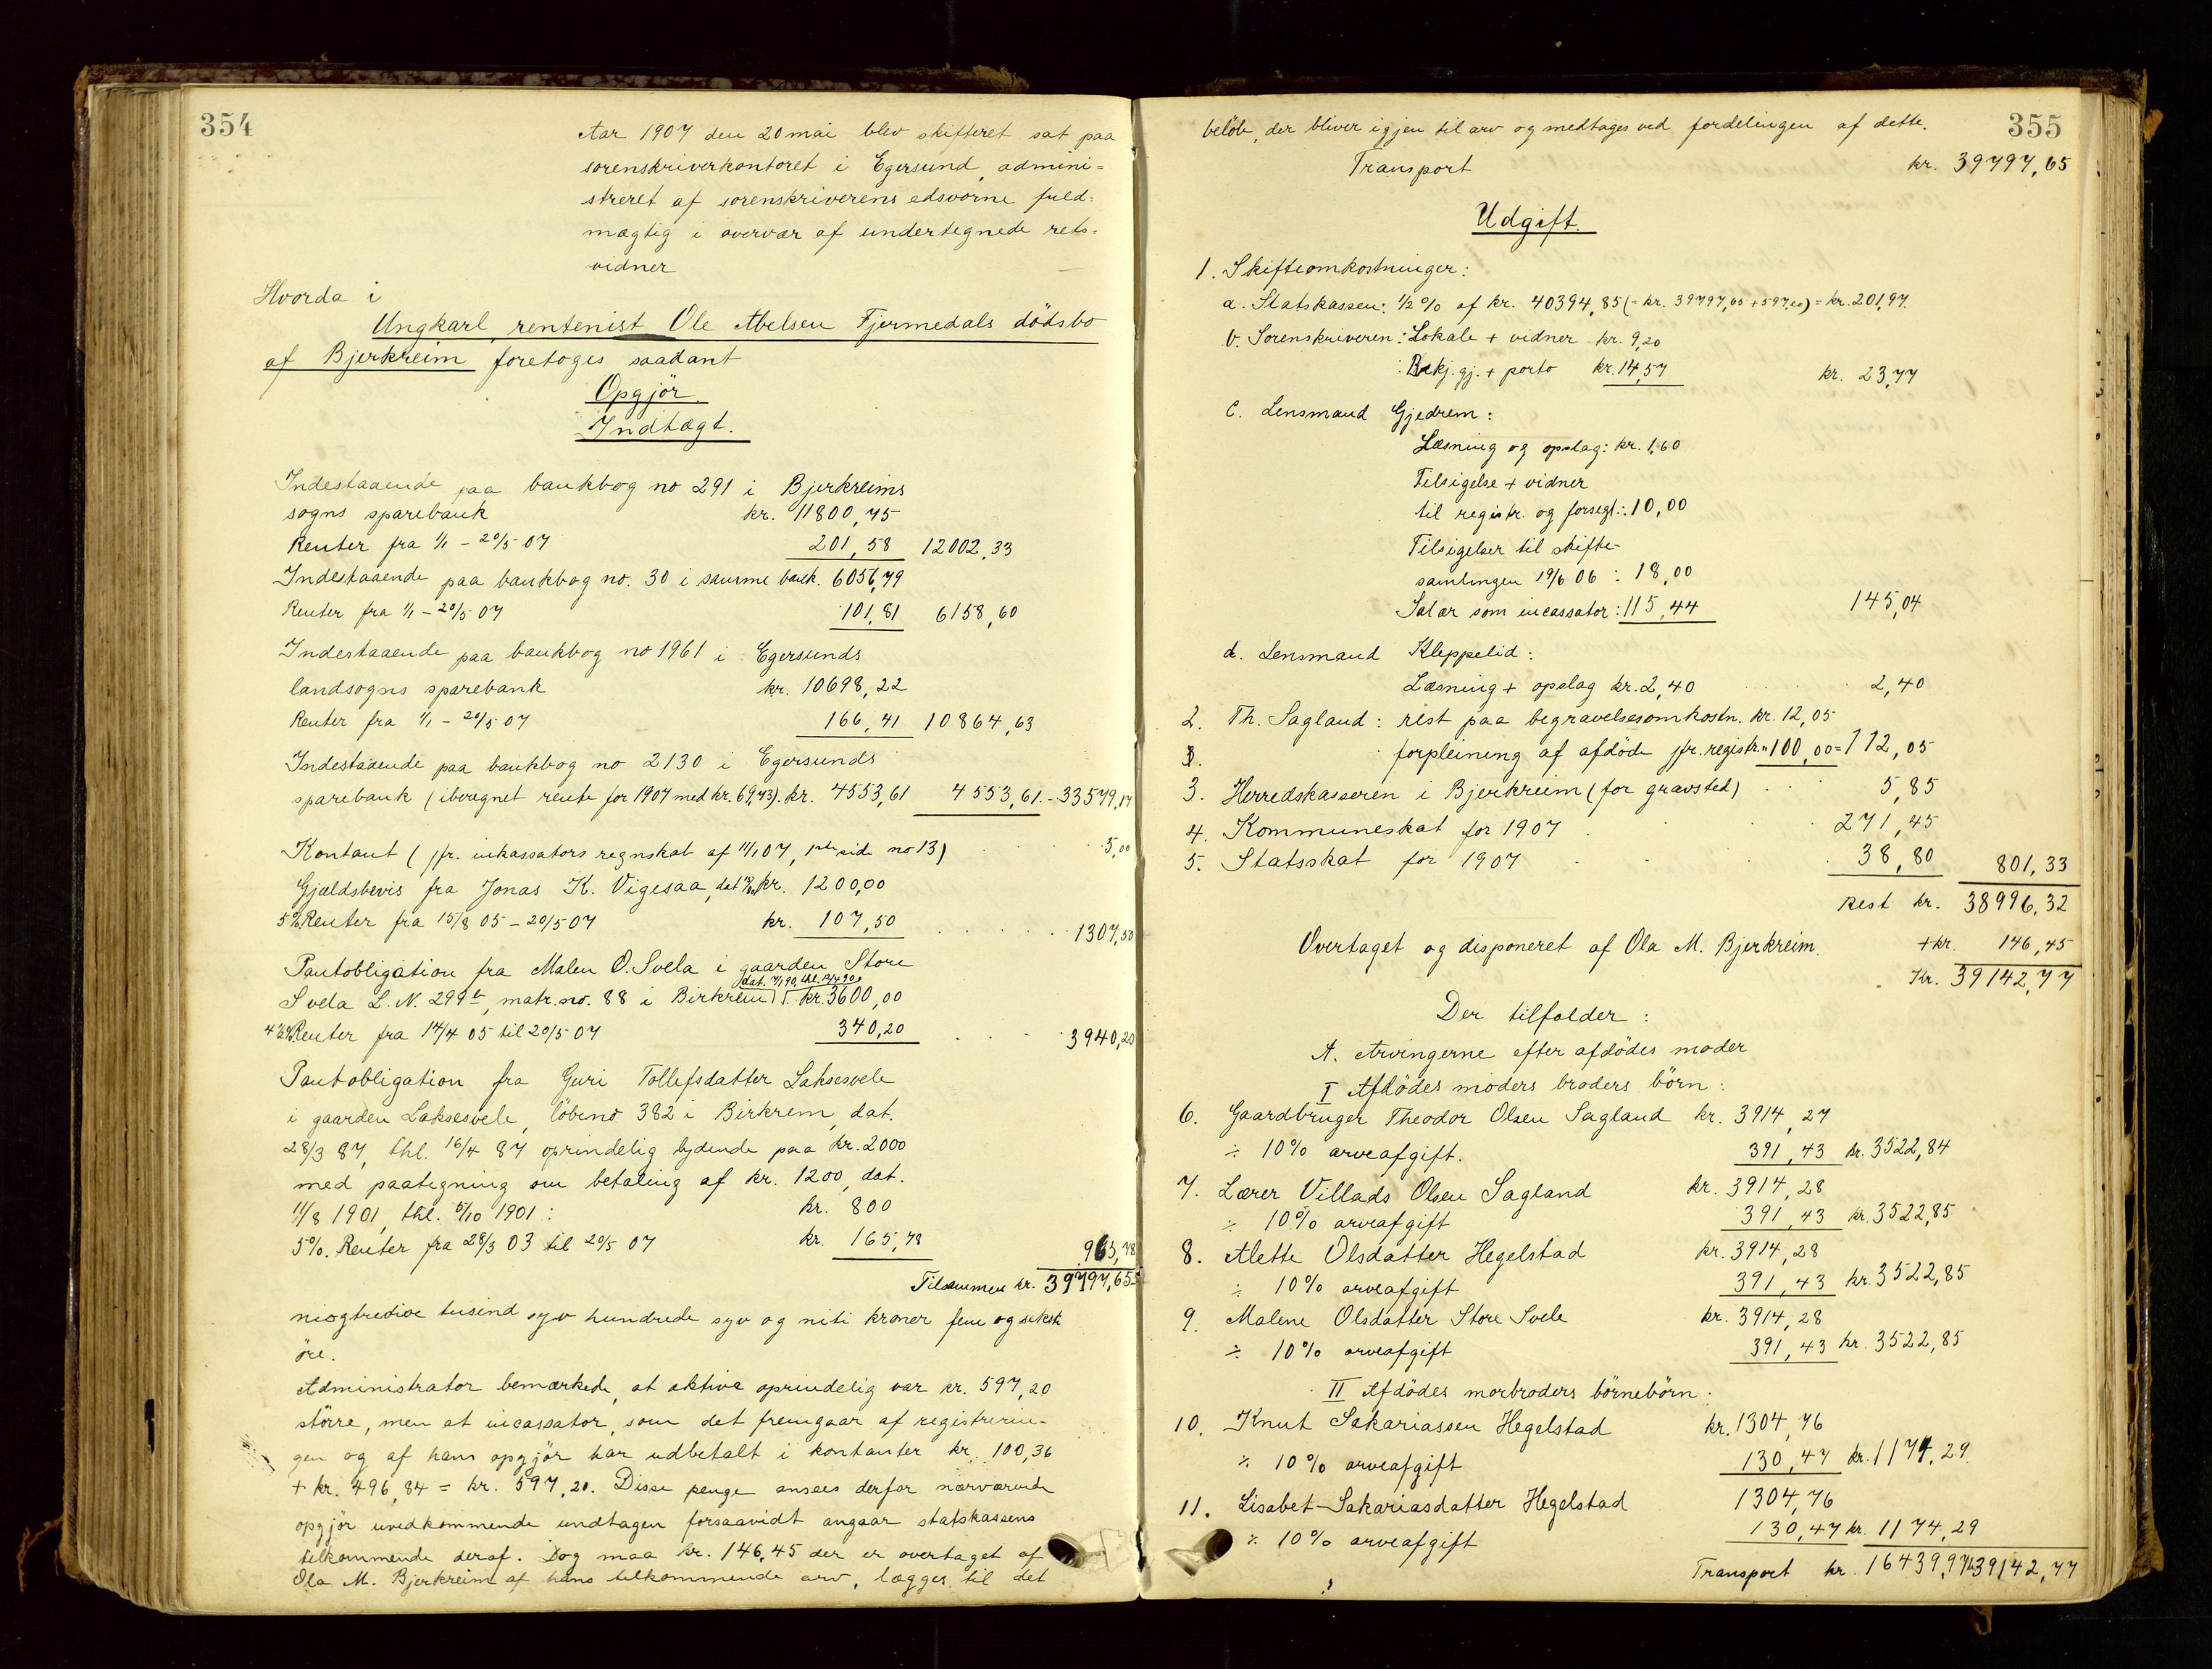 354
Aar 1907 den 20 mai blev skifteret sat paa
sorenskriverkontoret i Egersund, admini=
streret af sorenskriverens edsvorne fuld=
mægtig i overvær af undertegnede rets=
vidner
Hvorda i
Ungkarl, rentenist Ole Abelsen Fjermedals dödsbo
af Bjerkreim foretoges saadant
Opgjör.
Indtægt.
Indestaaende paa bankbog no 291 i Bjerkreims
sogns sparebank kr. 11800,75
Renter fra 1/1 - 20/5 07 201,58 12002,33
Indestaaende paa bankbog no. 30 i samme bank. 6056,79
Renter fra 1/1 - 20/5 07 101,81 6158,60
Indestaaende paa bankbog no 1961 i Egersunds
landsogns sparebank kr. 10698,22
Renter fra 1/1 - 20/5 07 166,41 10864,63
Indestaaende paa bankbog no 2130 i Egersunds
sparebank (iberegnet rente for 1907 med kr. 69,43). kr. 4553,61 4553,61 - 33579,17
Kontant (jfr. inkassators regnskab af 11/1 07, 1ste side no 13) 5,00
Gjældsbevis fra Jonas K. Vigesaa, dat kr. 1200,00
5% Renter fra 15/8 05 - 20/5 07 kr. 107,50 1307,50
Pantobligation fra Malen O. Svela i gaarden Store
Svela L.N. 299 b, matr. no. 88 i Birkrem kr. 3600,00
4½% Renter fra 14/4 05 til 20/5 07 340,20 3940,20
Pantobligation fra Guri Tollefsdatter Laksesvele
i gaarden Laksesvele, löbeno 382 i Birkrem, dat.
28/3 87, thl. 16/4 87 oprindelig lydende paa kr. 2000
med paategning om betaling af kr. 1200, dat.
11/8 1901, thl. 5/10 1901: kr. 800
5%. Renter fra 28/3 03 til 20/5 07 kr. 165,78 965,78
Tilsammen kr. 39797,65
niogtredive tusind syv hundrede syv og niti kroner fem og seksti
öre.
Administrator bemærkede, at aktiva oprindelig var kr. 597,20
större, men at incassator, som det fremgaar af registrerin-
gen og af hans opgjör har udbetalt i kontanter kr. 100,36
+ kr. 496,84 = kr. 597,20. Disse penge ansees derfor nærværende
opgjör uvedkommende undtagen forsaavidt angaar statskassens
tilkommende deraf. Dog maa kr. 146,45 der er overtaget af
Ola M. Bjerkreim af hans tilkommende arv, lægges til det
355
belöb, der bliver igjen til arv og medtages ved fordelingen af dette.
Transport kr. 39797,65
Udgift.
1. Skifteomkostninger:
a. Statskassen: 1/2 % af kr. 40394,85 (= kr. 39797,65 + 597,20) = kr. 201,97.
b. Sorenskriveren: Lokale + vidner kr. 9,20
: Bekj. gj. + porto kr. 14,57 kr. 23,77
c. Lensmand Gjedrem:
Læsning og opslag: kr. 1,60
Tilsigelse + vidner
til registr. og forsegl.: 10,00
Tilsigelser til skifte-
samlingen 19/6 06 : 18,00
Salær som incassator: 115,44 145,04
d. Lensmand Kleppelid:
Læsning + opslag kr. 2,40 2,40
2. Th. Sagland: rest paa begravelsesomkostn. kr. 12,05
forpleining af afdöde jfr. registr. " 100,00 = 112,05
3. Herredskasseren i Bjerkreim (for gravsted) 5,85
4. Kommuneskat for 1907 271,45
5. Statsskat for 1907 38,80 801,33
Rest kr. 38996,32
Overtaget og disponeret af Ola M. Bjerkreim + kr. 146,45
Kr. 39142,77
Der tilfalder:
A. Arvingerne efter afdödes moder
I Afdödes moders broders börn:
6. Gaardbruger Theodor Olsen Sagland kr. 3914,27
÷ 10% arveafgift. 391,43 kr. 3522,84
7. Lærer Villads Olsen Sagland kr. 3914,28
÷ 10% arveafgift 391,43 kr. 3522,85
8. Alette Olsdatter Hegelstad kr. 3914,28
÷ 10% arveafgift 391,43 kr. 3522,85
9. Malene Olsdatter Store Svele kr. 3914,28
÷ 10% arveafgift 391,43 kr. 3522,85
II Afdödes morbroders börnebörn:
10. Knut Sakariassen Hegelstad kr. 1304,76
÷ 10% arveafgift 130,47 kr. 1174,29
11. Lisabet Sakariasdatter Hegelstad 1304,76
÷ 10% arveafgift 130,47 kr. 1174,29
Transport kr. 16439,97 39142,77